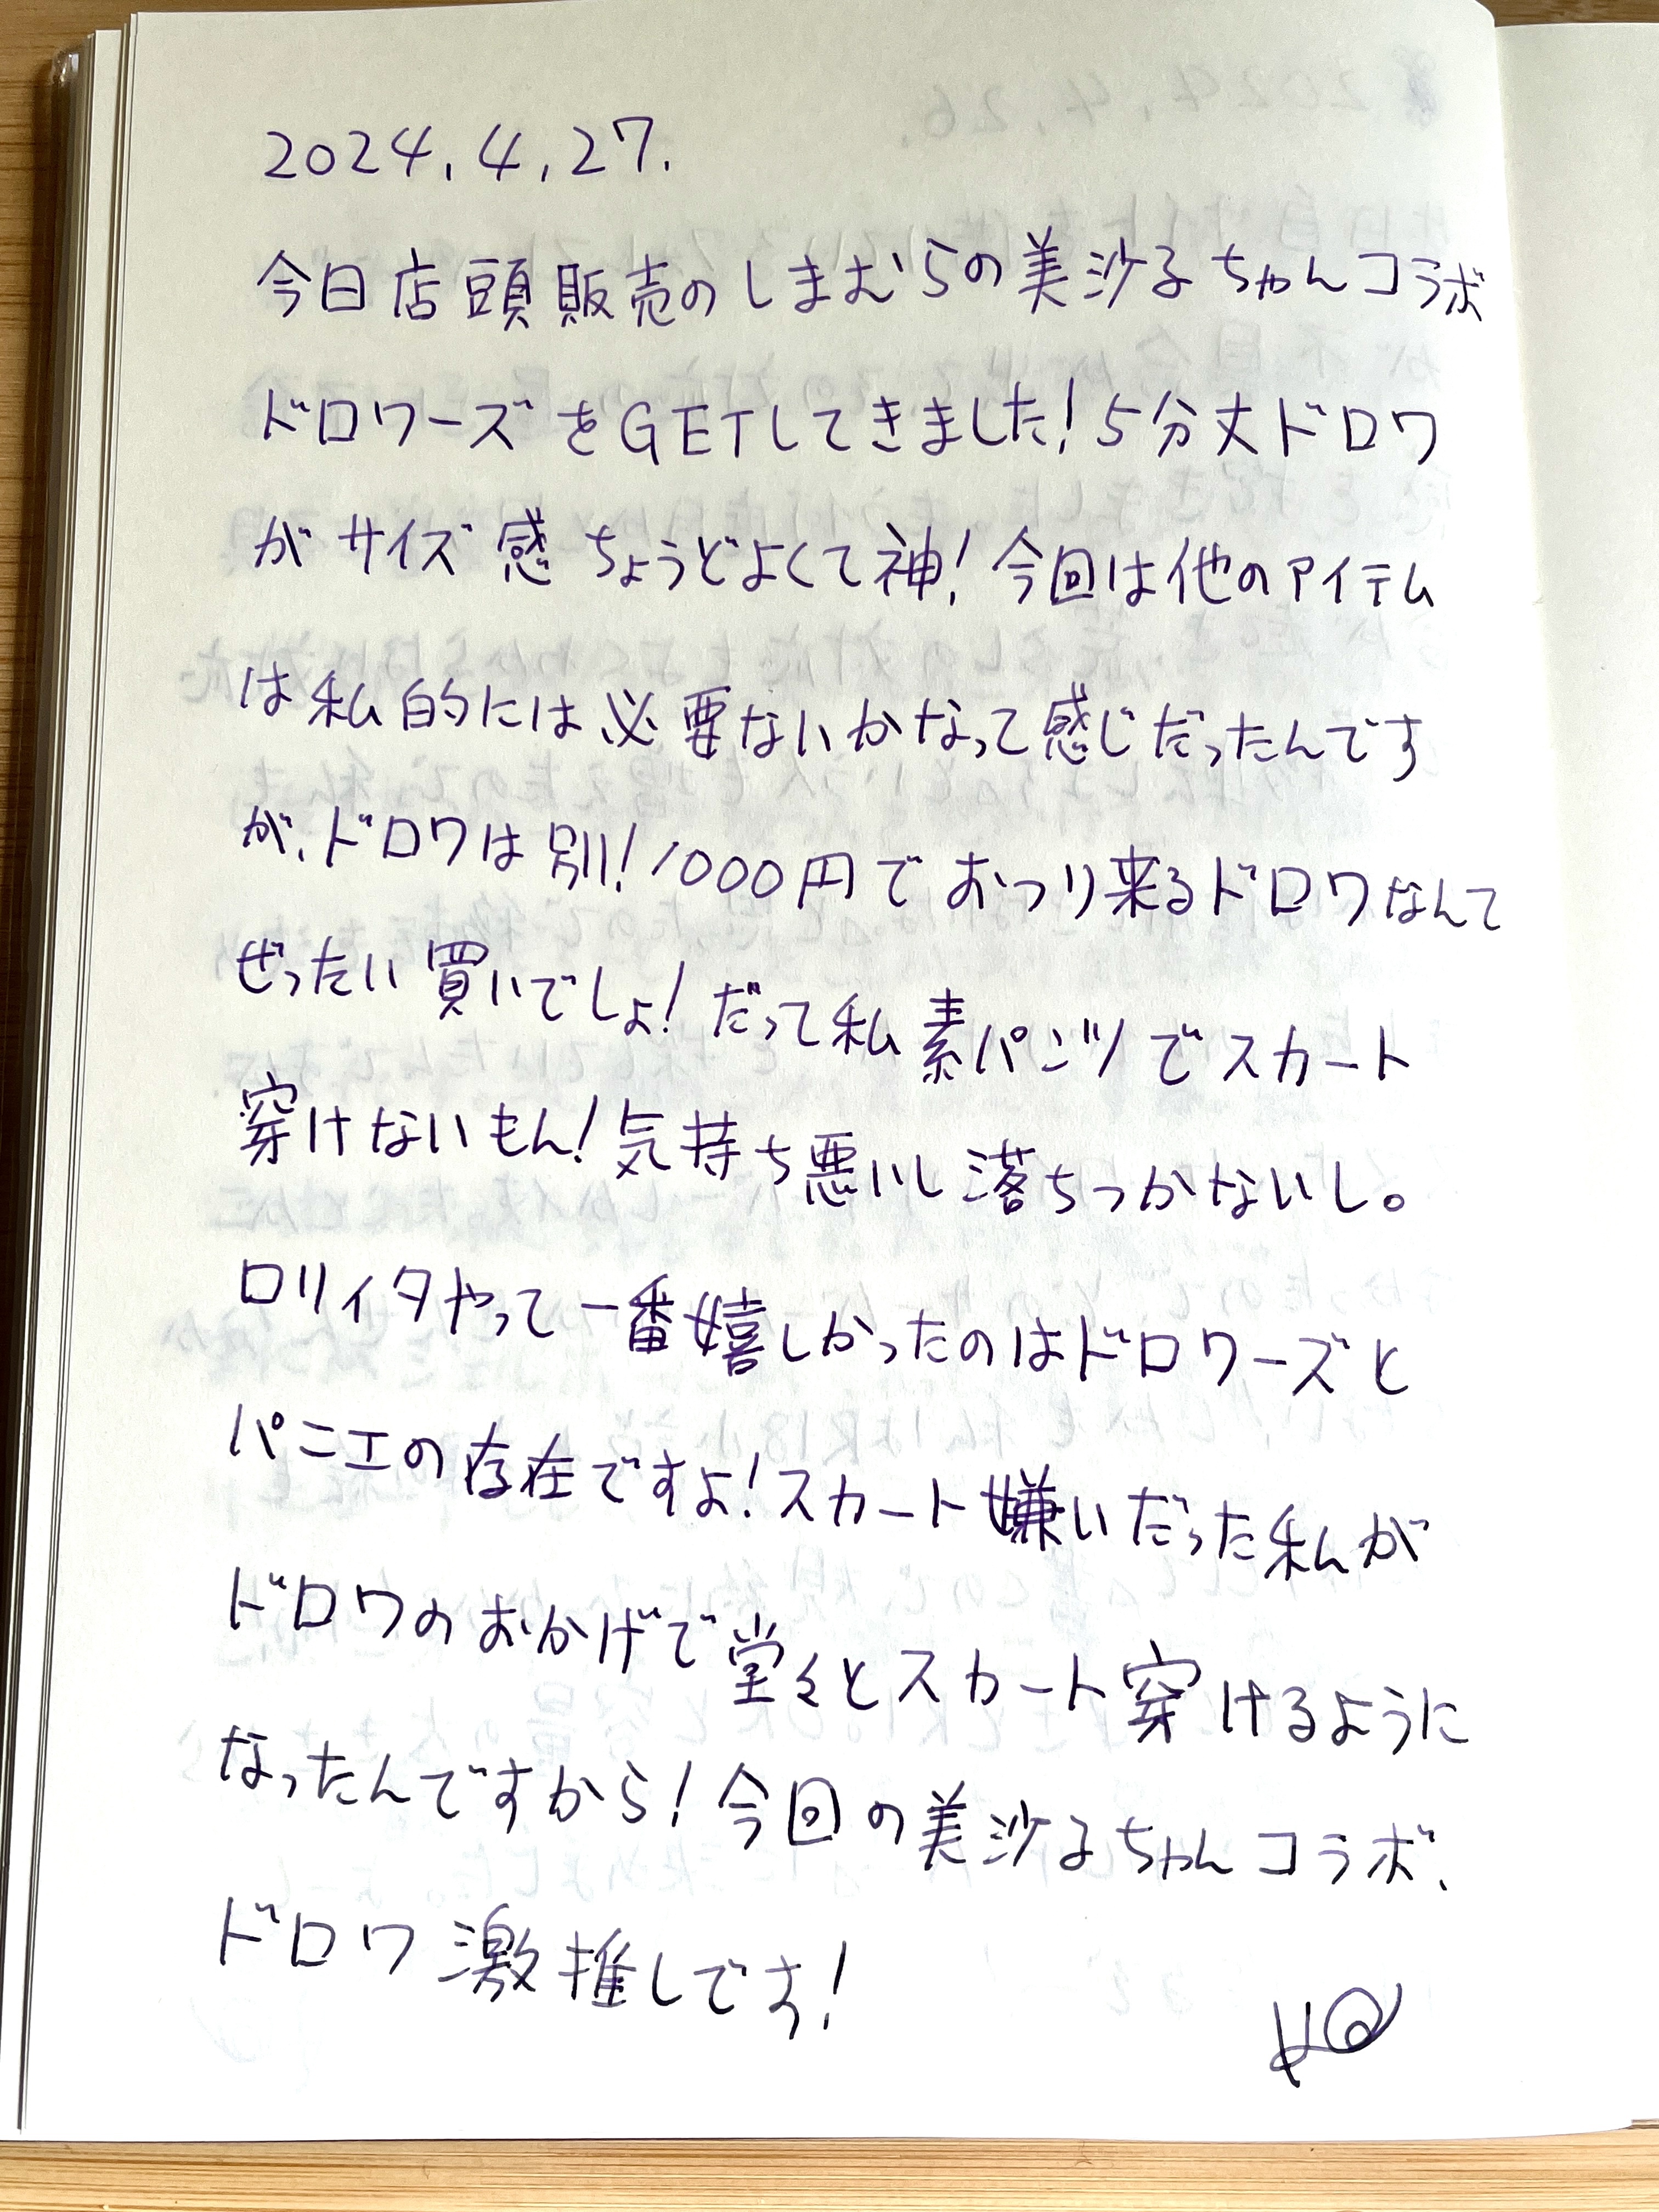 2024.4.27.
今日店頭販売のしまむらの美沙子ちゃんコラボ
ドロワーズをGETしてきました!5分丈ドロワ
がサイズ感ちょうどよくて神!今回は他のアイテム
は私的には必要ないかなって感じだったんです
が、ドロワは別!1000円でおつり来るドロワなんて
ぜったい買いでしょ!だって私素パンツでスカート
穿けないもん!気持ち悪いし落ちつかないし。
ロリイタやって一番嬉しかったのはドロワーズと
パニエの存在ですよ!スカート嫌いだった私が
ドロワのおかげで堂々とスカート穿けるように
なったんですから!今回の美沙子ちゃんコラボ、
ドロワ激推しです!